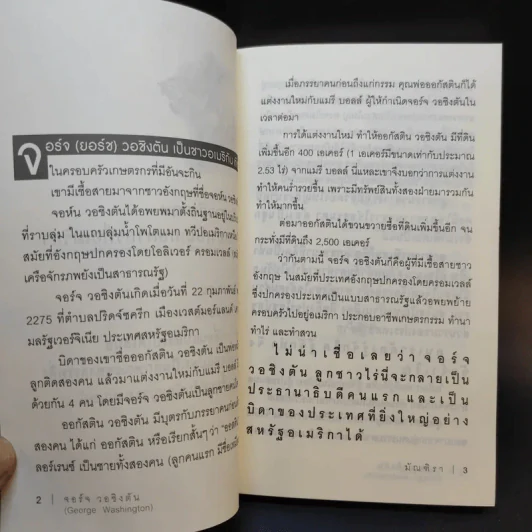 จอร์จ (ยอร์ช) วอชิงตัน เป็นชาวอเมริกัน
ในครอบครัวเกษตรกรที่มีอันจะกิน
เขามีเชื้อสายมาจากชาวอังกฤษที่ชื่อจอห์น วอชิงตัน
จอห์น วอชิงตันได้อพยพมาตั้งถิ่นฐานอยู่ใน
ที่ราบลุ่ม ในแถบลุ่มน้ำโพโตแมก ทวีปอเมริกาเหนือ
สมัยที่อังกฤษปกครองโดยโอลิเวอร์ ครอมเวลล์
เครือจักรภพยังเป็นสาธารณรัฐ)
จอร์จ วอชิงตันเกิดเมื่อวันที่ 22 กุมภาพันธ์
2275 ที่ตำบลบริดจ์ซครีก เมืองเวสต์มอร์แลนด์
มลรัฐเวอร์จิเนีย ประเทศสหรัฐอเมริกา
บิดาของเขาชื่อออกัสติน วอชิงตัน เป็นพ่อ
ลูกติดสองคน แล้วมาแต่งงานใหม่กับแมรี่ บอลล์
ด้วยกัน 4 คน โดยมีจอร์จ วอชิงตันเป็นลูกชาย
ออกัสติน วอชิงตัน มีบุตรกับภรรยาคนก่อน
สองคน ได้แก่ ออกัสติน หรือเรียกสั้นๆ ว่า
ลอว์เรนซ์ เป็นชายทั้งสองคน (ลูกคนแรก มีชื่อ
2 | จอร์จ วอชิงตัน
(George Washington)
เมื่อภรรยาคนก่อนถึงแก่กรรม คุณพ่อออกัสตินก็ได้
แต่งงานใหม่กับแมรี่ บอลล์ ผู้ให้กำเนิดจอร์จ วอชิงตันใน
เวลาต่อมา
การได้แต่งงานใหม่ ทำให้ออกัสติน วอชิงตัน มีที่ดิน
เพิ่มขึ้นอีก 400 เอเคอร์ (1 เอเคอร์มีขนาดเท่ากับประมาณ
2.53 ไร่) จากแมรี่ บอลล์ นี่แหละเขาจึงบอกว่าการแต่งงาน
ทำให้คนร่ำรวยขึ้น เพราะมีทรัพย์สินทั้งสองฝ่ายมารวมกัน
ทำให้มากขึ้น
ต่อมาออกัสตินได้ขวนขวายซื้อที่ดินเพิ่มขึ้นอีก จน
กระทั่งมีที่ดินถึง 2,500 เอเคอร์
ว่ากันตามนี้ จอร์จ วอชิงตันก็คือผู้ที่มีเชื้อสายชาว
อังกฤษ ในสมัยที่ประเทศอังกฤษปกครองโดยครอมเวลล์
ซึ่งปกครองประเทศเป็นแบบสาธารณรัฐแล้วอพยพย้าย
ครอบครัวไปอยู่อเมริกา ประกอบอาชีพเกษตรกรรม ทำนา
ทำไร่ และทำสวน
ไม่น่าเชื่อเลยว่า จอร์จ
วอชิงตัน ลูกชาวไร่นี่จะกลายเป็น
ประธานาธิบดีคนแรก และเป็น
บิดาของประเทศที่ยิ่งใหญ่อย่าง
สหรัฐอเมริกาได้
มัณฑิรา | 3